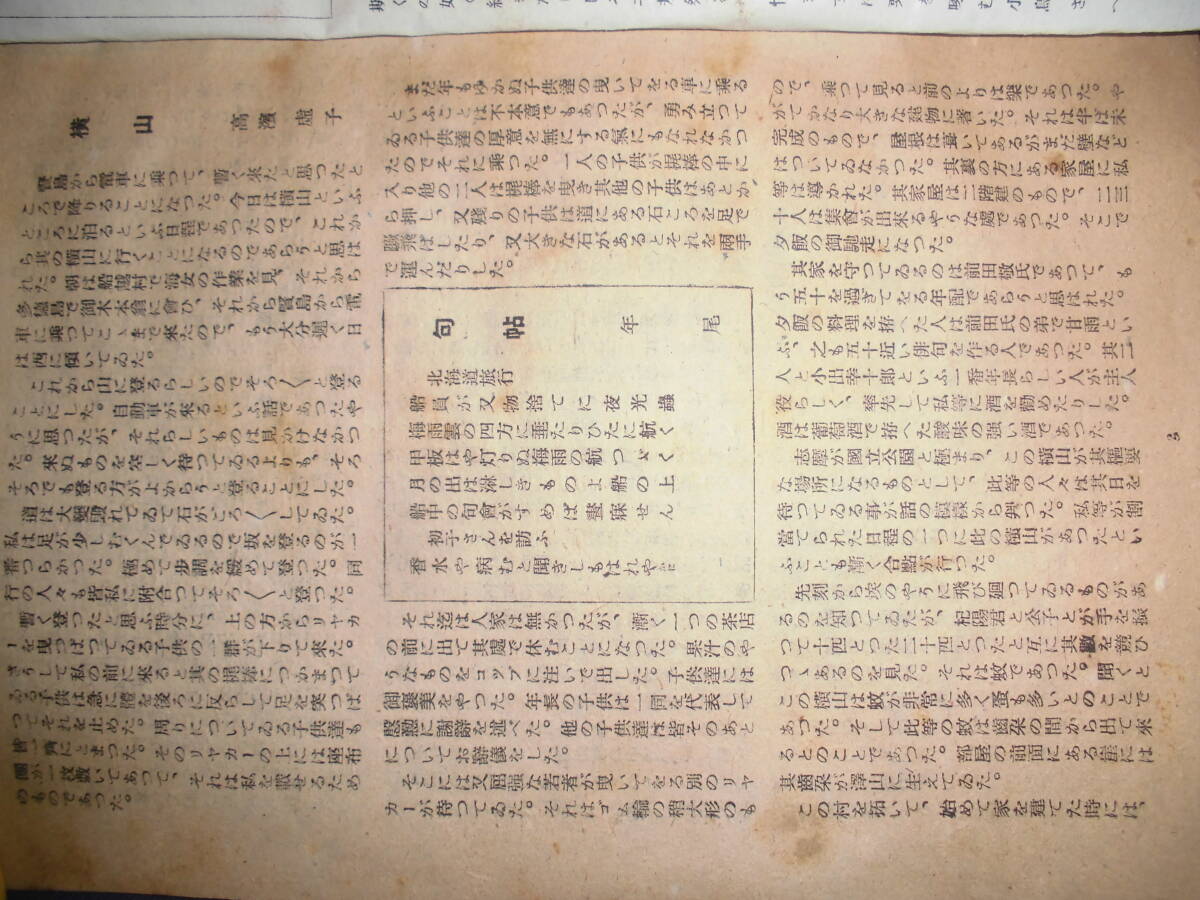 横山
高濱虚子
賢島から電車に乗つて、暫く來たと思つたと
ころで降りることになつた。今日は横山といふ
ところに泊るといふ日程であつたので、これか
ら其の横山に行くことになるのであらうと思は
れた。朝は船越村で海女の作業を見、それから
多德島で御木本翁に會ひ、それから賢島から電
車に乗つてこゝまで來たので、もう大分遲く日
は西に傾いてゐた。
これから山に登るらしいのでそろ〱と登る
ことにした。自動車が來るといふ話であつたや
うに思つたが、それらしいものは見かけなかつ
た。來ぬものを空しく待つてゐるよりも、そろ
そろでも登る方がよからうと登ることにした。
道は大變毀れてゐて石がごろ〱してゐた。
私は足が少しむくんでゐるので坂を登るのが一
番つらかつた。極めて歩調を緩めて登つた。同
行の人々も皆私に附合つてそろ〱と登つた。
暫く登つたと思ふ時分に、上の方からリヤカ
ーを曳つぱつてゐる子供の一群が下りて來た。
さうして私の前に來ると其の梶棒につかまつて
ゐる子供は急に體を後ろに反らして足を突つぱ
つてそれを止めた。周りについてゐる子供達も
皆一齊にとまつた。そのリヤカーの上には座布
團が一枚敷いてあつて、それは私を載せるため
のものであつた。
まだ年もゆかぬ子供達の曳いてをる車に乗る
といふことは不本意でもあつたが、勇み立つて
ゐる子供達の厚意を無にする氣にもなれなかつ
たのでそれに乗つた。一人の子供が梶棒の中に
入り他の二人は梶棒を曳き其他の子供はあとか
ら押し、又殘りの子供は道にある石ころを足で
蹴飛ばしたり、又大きな石があるとそれを兩手
で運んだりした。
句帖
年尾
北海道旅行
船員が又物捨てに夜光蟲
梅雨雲の四方に垂たりひたに航く
甲板はや灯りぬ梅雨の航つゞく
月の出は淋しきものよ船の上
船中の句會がすめば晝寐せん
初子さんを訪ふ
香水や病むと聞きしもはれやかに
それ迄は人家は無かつたが、漸く一つの茶店
の前に出て其處で休むことになつた。果汁のや
うなものをコップに注いで出した。子供達には
御褒美をやつた。年長の子供は一同を代表して
慇懃に謝辭を述べた。他の子供達は皆そのあと
についてお辭儀をした。
そこには又屈强な若者が曳いてをる別のリヤ
カーが待つてゐた。それはゴム輪の稍大形のも
ので、乗つて見ると前のよりは樂であつた。や
がてかなり大きな建物に着いた。それは半ば未
完成のもので、屋根は葺いてあるがまだ壁など
はついてゐなかつた。其裏の方にある家屋に私
等は導かれた。其家屋は二階建のもので、二三
十人は集會が出來るやうな處であつた。そこで
夕飯の御馳走になつた。
其家を守つてゐるのは前田敬氏であつて、も
う五十を過ぎてをる年配であらうと思はれた。
夕飯の料理を拵へた人は前田氏の弟で甘雨とい
ふ、之も五十近い俳句を作る人であつた。其二
人と小出幸十郎といふ一番年長らしい人が主人
役らしく、率先して私等に酒を勸めたりした。
酒は葡萄酒で拵へた酸味の强い酒であつた。
志摩が國立公園と極まり、この横山が其樞要
な場所になるものとして、此等の人々は其日を
待つてゐる事が話の模樣から興つた。私等が割
當てられた日程の一つに此の横山があつたとい
ふことも漸く合點が行つた。
先刻から埃のやうに飛び廻つてゐるものがあ
るのを知つてゐたが、杞陽君と公子とが手を振
つて十匹とつた二十匹とつたと互に其數を競ひ
つゝあるのを見た。それは蚊であつた。聞くと
この横山は蚊が非常に多く蚤も多いとのことで
あつた。そして此等の蚊は齒朶の間から出て來
るとのことであつた。部屋の前面にある崖には
其齒朶が澤山に生えてゐた。
この村を拓いて、始めて家を建てた時には、
3